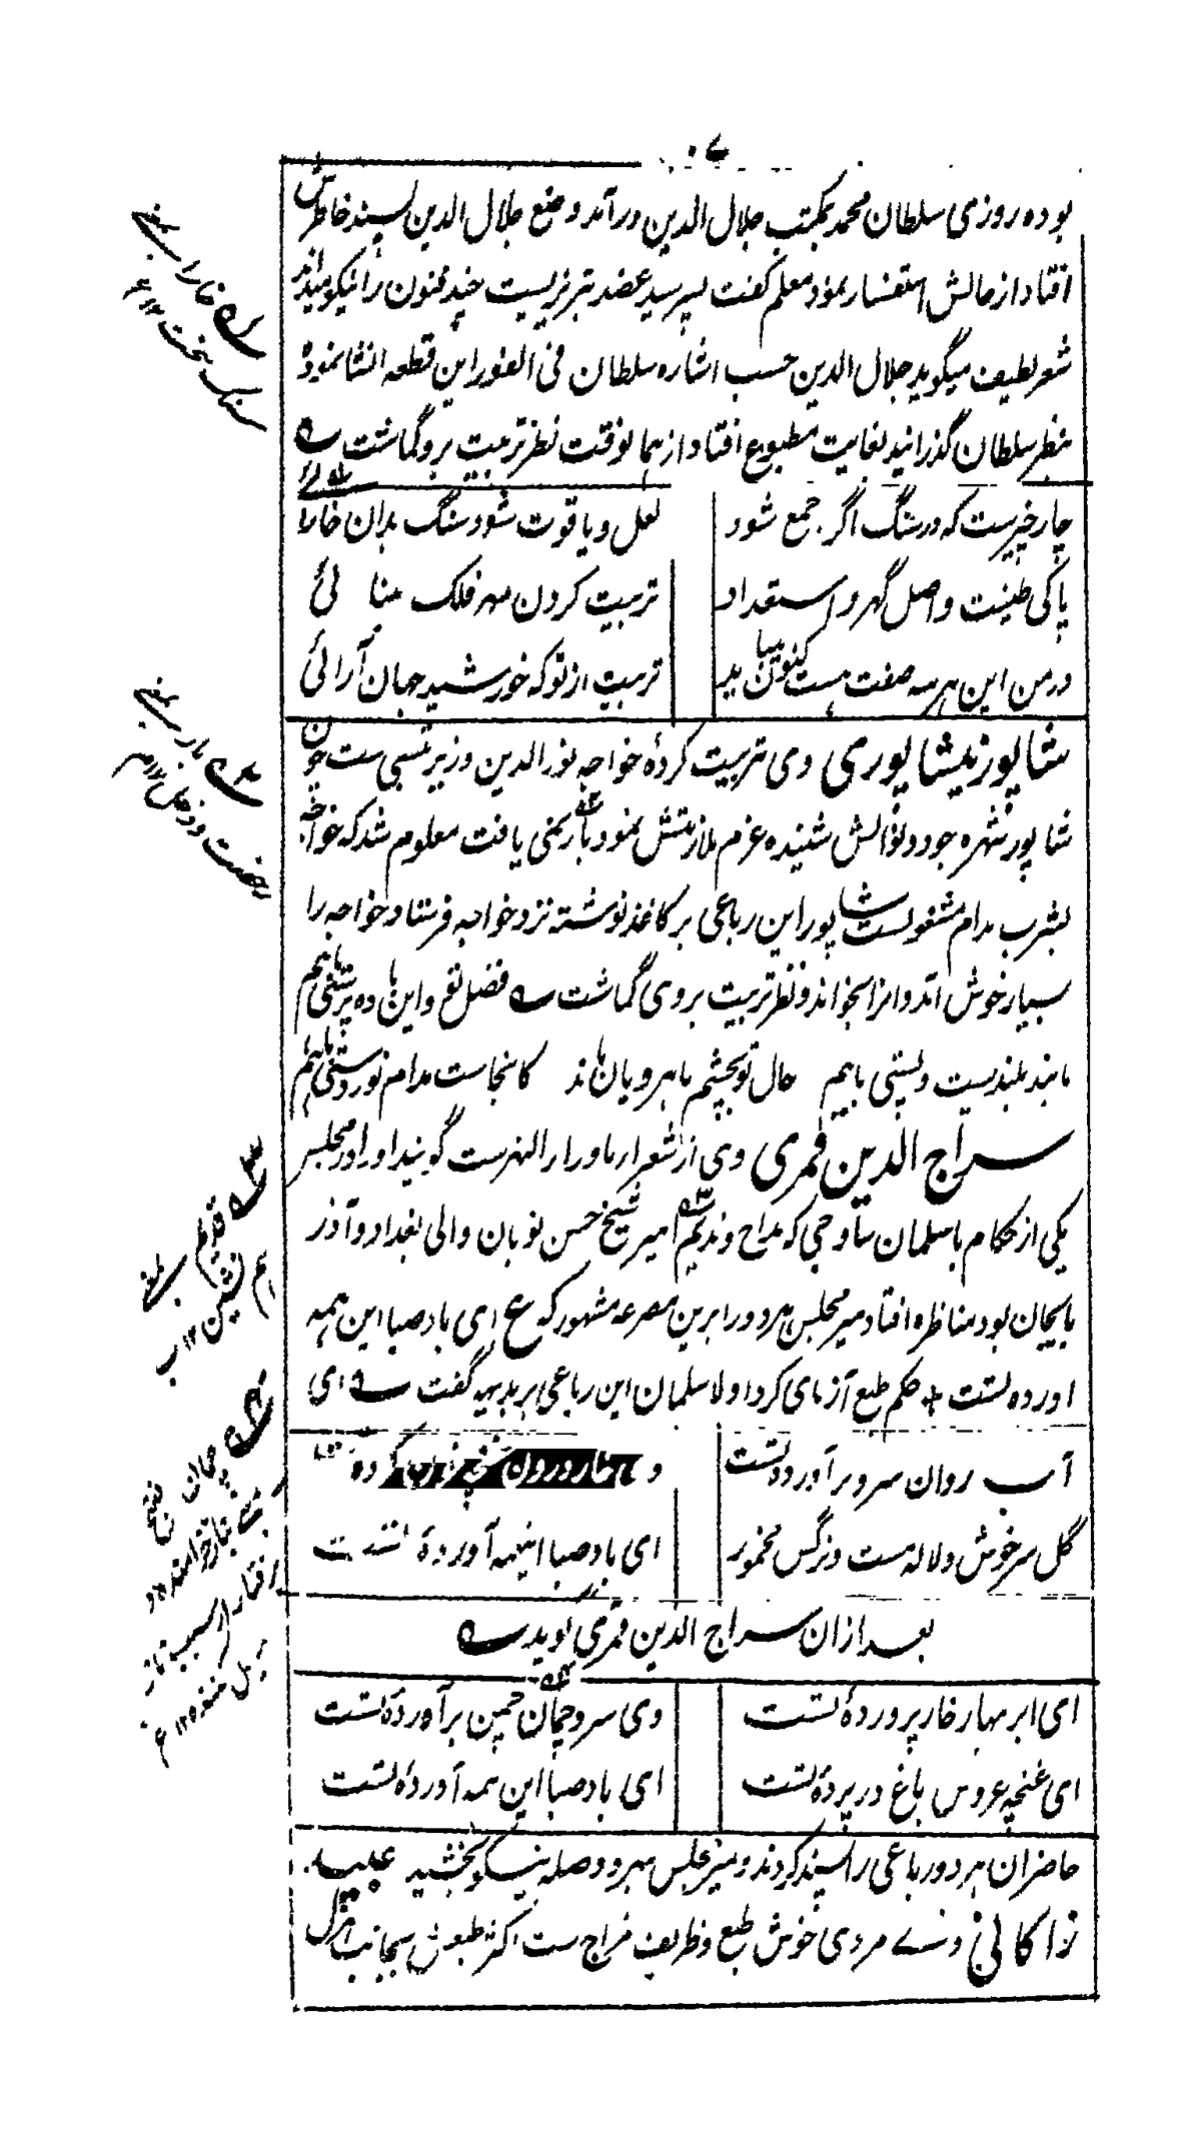 ۷۰
بوده روزی سلطان محمد بمکتب جلال الدین درآمد وضع جلال الدین پسند خاطرش
افتاد از حالش استفسار نمود معلم گفت پسر سید عضد تبریزیست چند فنون را نیکو میداند
شعر لطیف میگوید جلال الدین حسب اشاره سلطان فی الفور این قطعه انشا نموده
بنظر سلطان گذرانید بغایت مطبوع افتاد از همانوقت نظر تربیت بروگماشت ؎
چار چیزست که در سنگ اگر جمع شود
لعل و یاقوت شود سنگ بدان خارا
پاکی طینت و اصل گهر و استعداد
تربیت کردن مهر فلک مینائی
در من این هرسه صفت هست کنون میباید
تربیت از تو که خورشید جهان آرائی
شاپور نیشاپوری وی تربیت کردهٔ خواجه نورالدین وزیر ست چون
شاپور شهره جود و نوالش شنیده عزم ملازمتش نمود بار نمی یافت معلوم شد که خواجه
بشرب مدام مشغولست شاپور این رباعی بر کاغذ نوشته نزد خواجه فرستاد خواجه را
بسیار خوش آمد و او را بخواند و نظر تربیت بر وی گماشت ؎ فضل تو و این باده پرستی باهم
مانند بلندیست و پستی باهم حال تو بچشم ماهرویان ماند کانجاست مدام نور و مستی باهم
سراج الدین قمری وی از شعراء ماوراء النهرست گویند او را در مجلس
یکی از حکام با سلمان ساوجی که مداح و ندیم امیر شیخ حسن نویان والی بغداد و آذر
بایجان بود مناظره افتاد میر مجلس هر دو را برین مصرعه مشهور که ع ای باد صبا این همه
آورده تست * حکم طبع آزمای کرد اولا سلمان این رباعی بر بدیهه گفت ؎ ای
آب روان سرو برآورده تست
گل سرخوش و لاله مست و نرگس مخمور
ای باد صبا اینهمه آوردهٔ تست
بعد ازان سراج الدین قمری گوید ؎
ای ابر بهار خار پروردهٔ تست
وی سرو چمان چمن برآوردهٔ تست
ای غنچه عروس باغ در پردهٔ تست
ای باد صبا این همه آوردهٔ تست
حاضران هر دو رباعی را پسند کردند و میر مجلس بهر دو صله نیکو بخشید عبید
زاکانی وے مردی خوش طبع و ظریف مزاج ست اکثر طبعش بجانب هزل
۱؎ خارا بمعنی
سنگ سخت ۱۲
۲؎ بار بمعنی
رخصت و دخل ۱۲
۳؎ ندیم بمعنی
هم نشین ۱۲